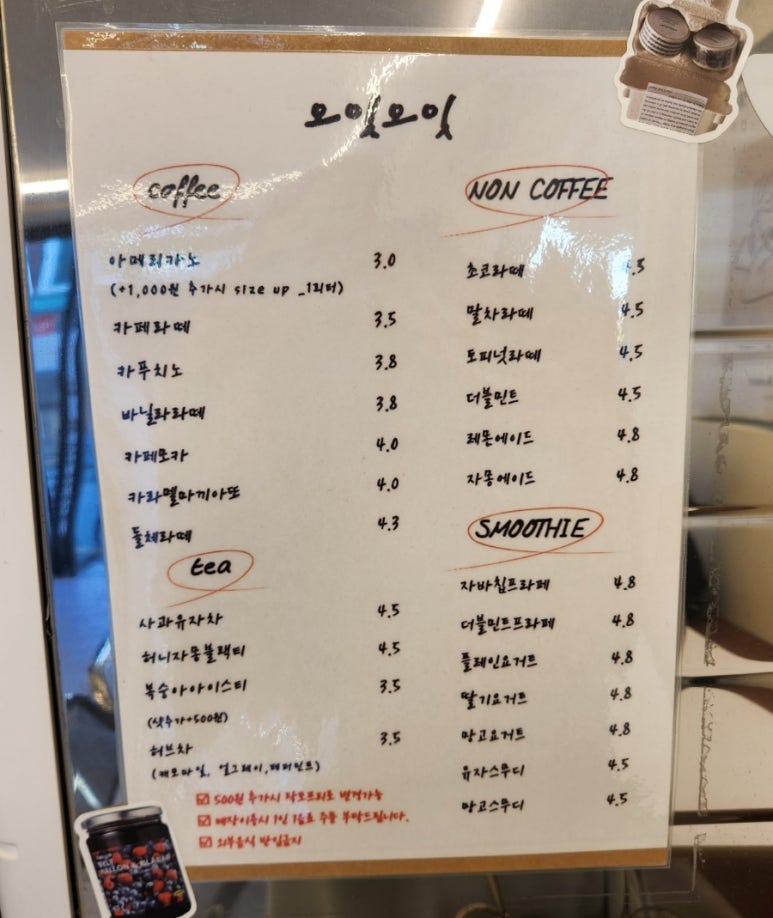 오잇오잇
coffee
아메리카노 3.0
(+1,000원 추가시 size up _1리터)
카페라떼 3.5
카푸치노 3.8
바닐라라떼 3.8
카페모카 4.0
카라멜마끼아또 4.0
돌체라떼 4.3
tea
사과유자차 4.5
허니자몽블랙티 4.5
복숭아아이스티 3.5
(샷추가+500원)
허브차 3.5
(캐모마일, 얼그레이, 페퍼민트)
NON COFFEE
초코라떼 4.5
말차라떼 4.5
토피넛라떼 4.5
더블민트 4.5
레몬에이드 4.8
자몽에이드 4.8
SMOOTHIE
자바칩프라페 4.8
더블민트프라페 4.8
플레인요거트 4.8
딸기요거트 4.8
망고요거트 4.8
유자스무디 4.5
망고스무디 4.5
☑ 500원 추가시 락토프리로 변경가능
☑ 매장이용시 1인 1음료 주문 부탁드립니다.
☑ 외부음식 반입금지